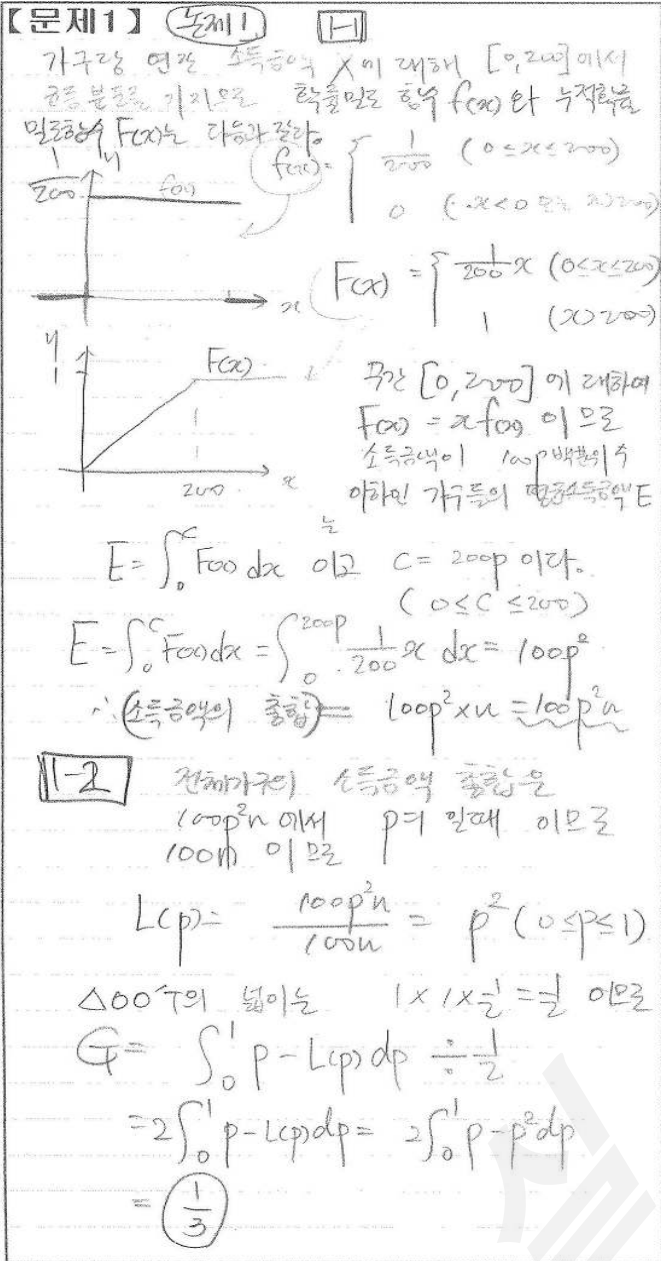 【문제1】 논제1 1-1
가구당 연간 소득금액 X에 대해 [0,200]에서
균등분포를 가지므로 확률밀도 함수 f(x)와 누적확률
밀도함수 F(x)는 다음과 같다.
f(x)= { 1/200 (0≤x≤200)
0 (x<0 또는 x>200)
y
1/200
f(x)
x
F(x) = { 1/200 x (0≤x≤200)
1 (x>200)
y
1
F(x)
200 x
구간 [0,200]에 대하여
F(x) = xf(x) 이므로
소득금액이 100p백분위수
이하인 가구들의 평균소득금액 E
는
E=∫₀ᶜ F(x) dx 이고 C=200p 이다.
(0≤C≤200)
E=∫₀ᶜ F(x)dx = ∫₀²⁰⁰ᵖ 1/200 x dx = 100p²
∴ (소득금액의 총합) = 100p²×n = 100p²n
1-2 전체가구의 소득금액 총합은
100p²n 에서 p=1 일때 이므로
100n 이므로
L(p)= 100p²n/100n = p² (0≤p≤1)
△OO'T의 넓이는 1×1×1/2=1/2 이므로
G= ∫₀¹ p-L(p)dp ÷ 1/2
=2∫₀¹ p-L(p)dp = 2∫₀¹ p-p²dp
= 1/3